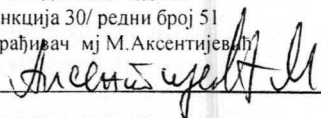 нкција 30/ редни број 51
рађивач мј М.Аксентијевић
Аксентијевић М